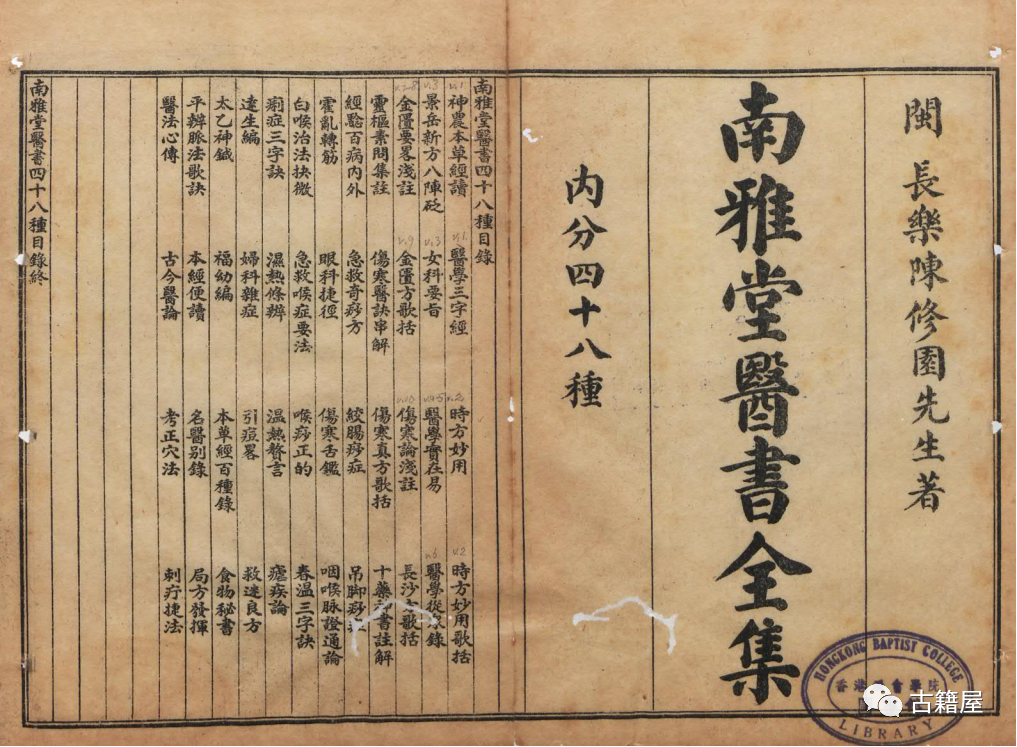 閩 長樂陳修園先生著
南雅堂醫書全集
內分四十八種
南雅堂醫書四十八種目錄
神農本草經讀 醫學三字經 時方妙用 時方妙用歌括
景岳新方八陣砭 女科要旨 醫學實在易 醫學從衆錄
金匱要畧淺註 金匱方歌括 傷寒論淺註 長沙方歌括
靈樞素問集註 傷寒醫訣串解 傷寒真方歌括 十藥神書註解
經驗百病內外 急救奇痧方 絞腸痧症 吊脚痧
霍亂轉筋 眼科捷徑 傷寒舌鑑 咽喉脉證通論
白喉治法抉微 急救喉症要法 喉痧正的 春溫三字訣
痢症三字訣 濕熱條辨 溫熱贅言 瘧疾論
達生編 婦科雜症 引痘畧 救迷良方
太乙神鍼 福幼編 本草經百種錄 食物秘書
平辨脈法歌訣 本經便讀 名醫別錄 局方發揮
醫法心傳 古今醫論 考正穴法 刺疔捷法
南雅堂醫書四十八種目錄終
HONGKONG BAPTIST COLLEGE
香港 會
LIBRARY
古籍屋